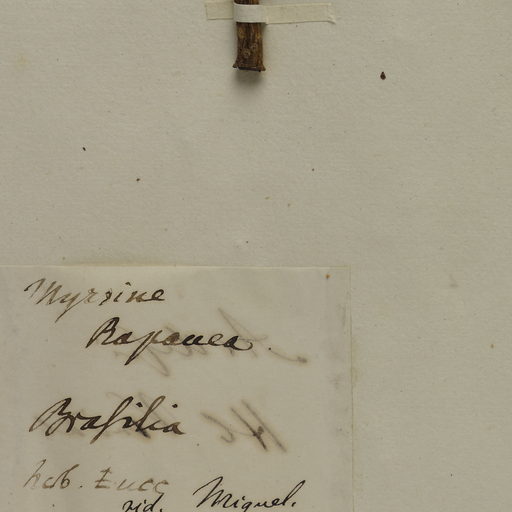 Myrsine
Rapanea.
Brasilia
hab. Zucc
vid. Miquel.